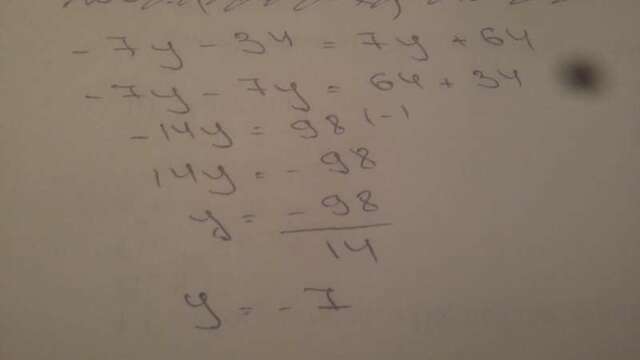 - 7y - 34 = 7y + 64
- 7y - 7y = 64 + 34
- 14y = 98 | - 1
14y = - 98
y = - 98
14
y = - 7